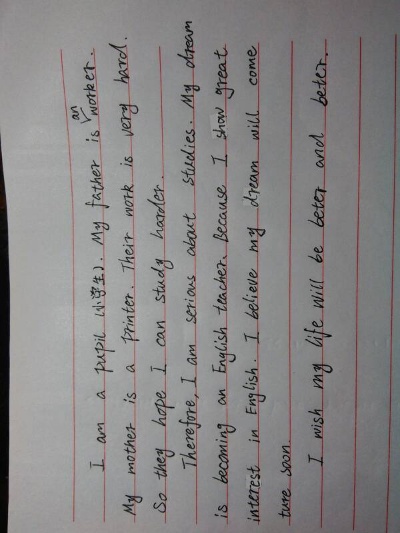 I am a pupil (小学生). My father is an worker.
My mother is a printer. Their work is very hard.
So they hope I can study harder.
Therefore, I am serious about studies. My dream
is becoming an English teacher. Because I show great
interest in English. I believe my dream will come
ture soon
I wish my life will be beter and beter.